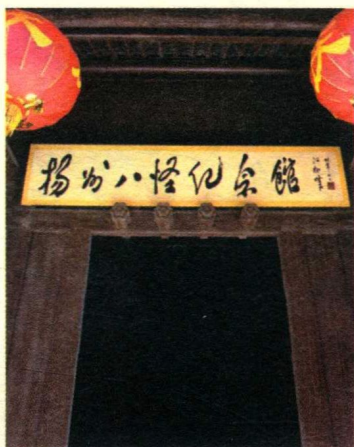 扬州八怪纪念馆